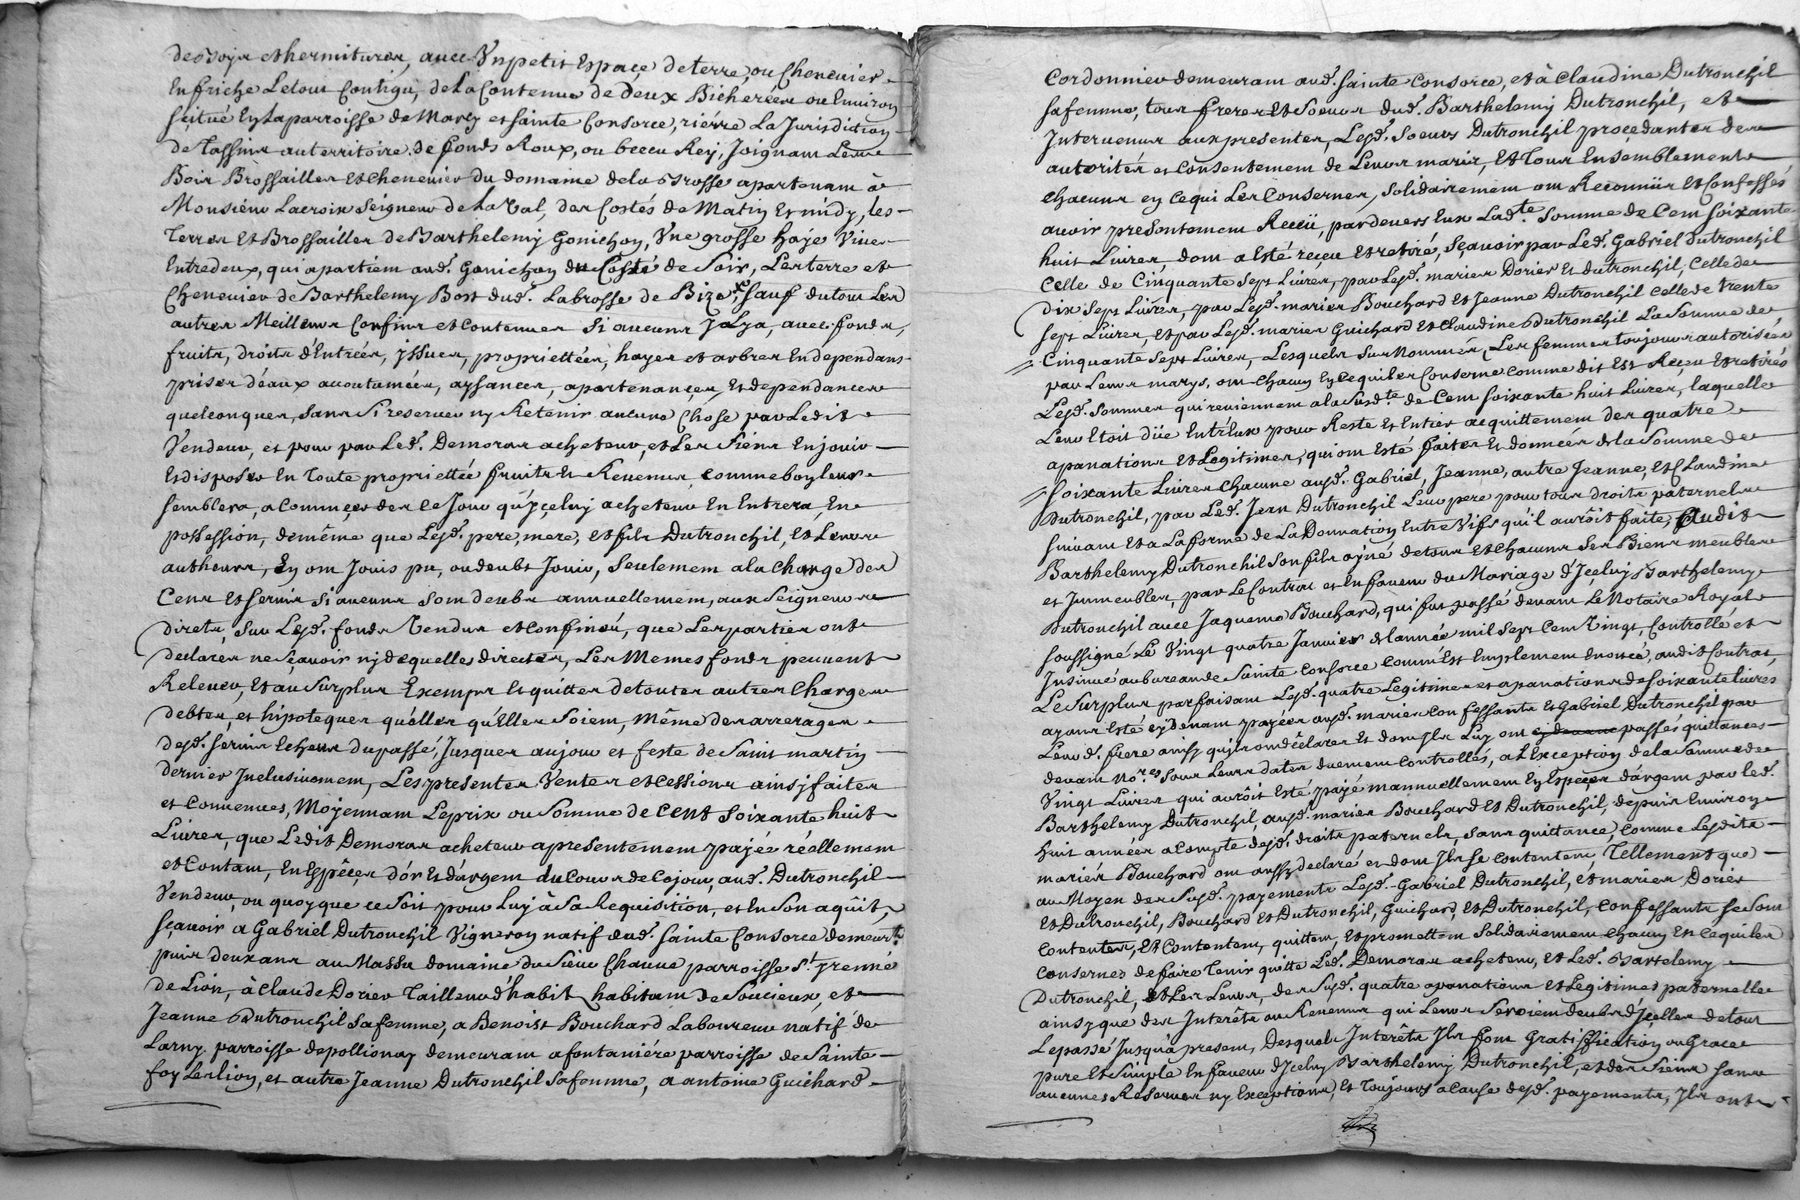 de Boys et hermitures, avec Un petit Espaçe de terre, ou Chenevier
En friche Le tout Contigu, de La Contenue de deux Bicherées ou Environ
scitué En La parroisse de Marcy et Sainte Consorce, riérre La Jurisdiction
de Tassins au territoire de fonds Roux, ou beccu Rey, Joignant Les
Bois Brossailles et Chenevier du domaine de la Brosse apartenant à
Monsieur Lacroix Seigneur de La Val, des Costés de Matin Et midy, les
Terres Et Brossailles de Barthelemy Gonichon, Une grosse haÿe Vive
Entredeux, qui apartient aud. Gonichon du Costé de Soir, Les terre et
Chenevier de Barthelemy Bost dud. Labrosse de Bize, Sauf du tout Les
autres Meilleurs Confins et Contenues Si aucuns y a, avec fonds,
fruits, droits d'Entrées, jssues, propriettées, hayes et arbres En dependans
prises d'éaux accoutumées, aysances, apartenançes, Et dependances
quelconques, sans Si reserver ny Retenir aucune Chose par Ledit
Vendeur, et pour par Led. Demoras acheteur, et Les Siens En jouir
Et disposer En toute propriettée fruits Et Revenus comme bon leurs
semblera, a Commençer des ce Jour qu'jçeluy acheteur En Entrera En
possession, de même que Lesd. pere, mere, et fils Dutronchil, Et Leurs
autheurs, En ont Jouis pu, ou deubt Jouir, Seulement a la Charge des
Cens Et Servis Si aucuns Sont deubs annuellement, aux Seigneurs
directs, Sur Lesd. fonds Vendus et Confinés, que Les parties ont
declarer ne Sçavoir nj de quelles directes, Les Memes fonds peuvent
Relever, Et au Surplus Exempts Et quittes de toutes autres Charges
debtes, et hipoteques quélles qu'Elles Soient, Même des arrerages
desd. Servis Echeus du passé, Jusques aujour et feste de Saint martin
dernier Jnclusivement, Les presentes Ventes et Cessions ainsj faites
et Convenues, Moÿennant Le prix ou Somme de Cent Soixante huit
Livres, que Ledit Demoras acheteur a presentement payée réellement
et Contant, En Espéçes d'ór Et d'árgent du Cours de Cejour, aud. Dutronchil
Vendeur, ou quoyque ce Soit pour Luy à Sa Requisition, et En Son aquit,
Sçavoir a Gabriel Dutronchil Vigneron natif dud. Sainte Consorce demeurt.
puis deux ans au Massu domaine du Sieur Chauue parroisse St. Jrenné
de Lion, à Claude Dorier Tailleur d'habit habitant de Soucieux, et
Jeanne Dutronchil Safemme, a Benoist Bouchard Laboureur natif de
Larny parroisse de pollionay demeurant a fontaniére parroisse de Sainte
foy Les lion, et autre Jeanne Dutronchil Safemme, a antoine Guichard
Cordonnier demeurant aud. Sainte Consorce, et à Claudine Dutronchil
Safemme, tous freres Et Soeurs dud. Barthelemy Dutronchil, et
Jntervenus aux presentes, Lesd. Soeurs Dutronchil proçedantes des
autorités et Consentement de Leurs maris, Et Tous Ensemblement
chacuns en Ce qui Les Conserner, Solidairement ont Reconnus Et Confessés
avoir presentement Recçu, pardevers Eux Ladte. Somme de Cent soixante
huit Livres, dont a Esté reçeu et retiré, Sçavoir par Led. Gabriel Dutronchil
Celle de Cinquante Sept Livres, par Lesd. maries Dorier Et dutronchil, Celle de
dix Sept Livres, par Lesd. maries Bouchard et Jeanne Dutronchil Celle de trente
Sept Livres, et par Lesd. maries Guichard et Claudine Dutronchil La Somme de
Cinquante Sept Livres, Lesquels Surnommés, Les femmes toujours autorisées
par Leurs marys, ont chacun En Ce qui Les Conserne Comme dit Est Reçeu Et retirés
Lesd. Sommes qui reviennent a la Susdte. de Cent soixante huit Livres, laquelle
Leur Etoit düe Entr'eux pour Reste Et Entier acquittement des quatre
apanations Et Legitimes, qui ont Esté faites Et données de la Somme de
Soixante Livres chacune ausd. Gabriel, Jeanne, autre Jeanne, et Claudine
Dutronchil, par Led. Jean Dutronchil Leur pere pour tous droits paternels
suivant Et a La forme de La Donnation Entre Vifs qu'il auroit faite, audit
Barthelemy Dutronchil Son fils ayné de tous Et Chacuns Ses Biens meubles
et Jmmeubles, par Le Contrat et En faveur du Mariage d'Jçeluy Barthelemy
Dutronchil avec Jaquemo Bouchard, qui fut passé devant Le Notaire Royal
soussigné Le Vingt quatre Janvier de L'année mil Sept Cent Vingt, Controllé et
Jnsinué au bureau de Sainte Consorce Comm'Est Emplement Enoncé, audit Contrat,
Le Surplus parfaisant Lesd. quatre Legitimes et apanations de soixante livres
ayant Esté cy devant payées ausd. maries Confessants et Gabriel Dutronchil par
Leurd. frere ainsy qu'ils ont déclarer Et dont Jls Luy ont passés quittances
devant Nores. Sous Leurs dates duement Controllés, a L'Exception de la Somme de
Vingt Livres qui auroit Esté payé mannuellement En Espéçes d'árgent par Led.
Barthelemy Dutronchil, ausd. maries Bouchard Et Dutronchil, depuis Environ
huit années a Compte desd. droits paternels, Sans quittance, Comme Lesdits
maries Bouchard ont aussy declaré et dont Jls Se contentent, Tellement que
au Moyen des Susd. payements Lesd. Gabriel Dutronchil, et maries Dorier
Et Dutronchil, Bouchard Et Dutronchil, Guichard, Et Dutronchil, Confessants Se Sont
Contentés, Et Contentent, quittent, Et promettent Solidairement chacun En Ce qui Les
Consernes de faire Tenir quitte Led. Demoras acheteur, et Led. Bartelemy
Dutronchil, Et Les Leurs, des Susd. quatre apanations Et Legitimes paternelle
ainsy que des Jnterêts ou Revenus qui Leurs Seroient deubs d'Jçelles de tout
Le passé Jusqua present, Desquels Jnterêts Jls font Gratiffication ou Grace
pure Et Simple En faveur d'Jceluy Barthelemy Dutronchil, et des Siens Sans
aucunes Reserves ny Exceptions, Et Toujours a Cause desd. payements, Jls ont